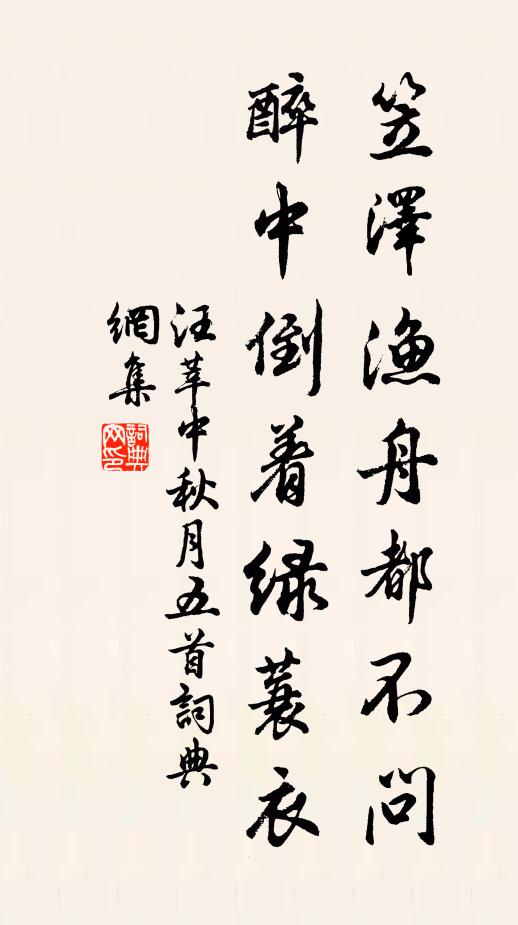 笠澤漁舟都不問
醉中倒着緑蓑衣
汪莘中秋月五首詞典
網集
詞典網印